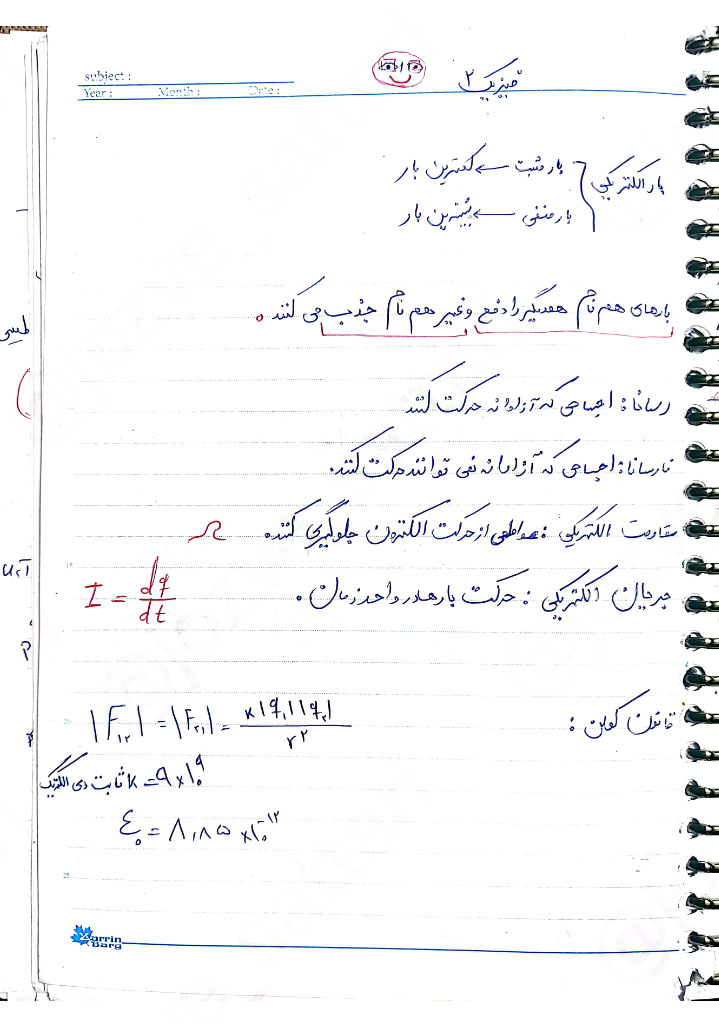 subject :
Year : Month : Date :
فیزیک ۲
بار الکتریکی
بار مثبت ← کمترین بار
بار منفی ← بیشترین بار
بارهای هم نام همدیگر را دفع و غیر هم نام جذب می کنند.
رسانا: اجسامی که آزادانه حرکت کنند
نارسانا: اجسامی که آزادانه نمی توانند حرکت کنند.
مقاومت الکتریکی : از حرکت الکترون جلوگیری کننده Ω
جریان الکتریکی : حرکت بارها در واحد زمان. I = dq/dt
قانون کولن : |F₁₂| = |F₂₁| = K|q₁||q₂| / r²
ثابت دی الکتریک K = ۹×۱۰⁹
ε₀ = ۸,۸۵ ×۱۰⁻¹²
15
20
25
Zarrin Barg